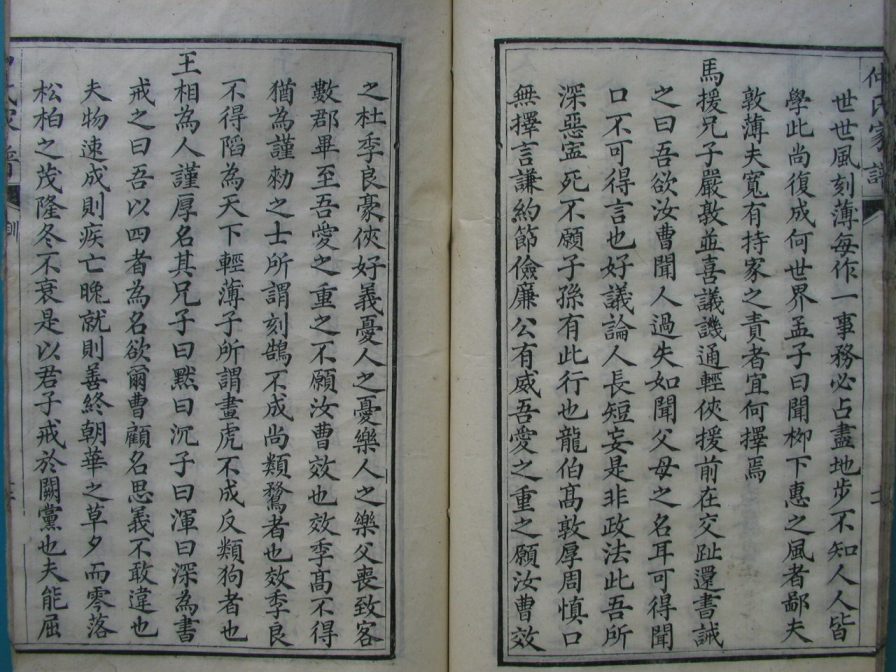 仲氏家譜
世世風刻薄每作一事務必占盡地步不知人人皆
學此尚復成何世界孟子曰聞柳下惠之風者鄙夫
敦薄夫寬有持家之責者宜何擇焉
馬援兄子嚴敦並喜議譏通輕俠援前在交趾還書誡
之曰吾欲汝曹聞人過失如聞父母之名耳可得聞
口不可得言也好議論人長短妄是非政法此吾所
深惡寧死不願子孫有此行也龍伯高敦厚周慎口
無擇言謙約節儉廉公有威吾愛之重之願汝曹效
之杜季良豪俠好義憂人之憂樂人之樂父喪致客
數郡畢至吾愛之重之不願汝曹效也效季高不得
猶為謹勑之士所謂刻鵠不成尚類鶩者也效季良
不得陷為天下輕薄子所謂畫虎不成反類狗者也
王相為人謹厚名其兄子曰默曰沉子曰渾曰深為書
戒之曰吾以四者為名欲爾曹顧名思義不敢違也
夫物速成則疾亡晚就則善終朝華之草夕而零落
松柏之茂隆冬不衰是以君子戒於闕黨也夫能屈